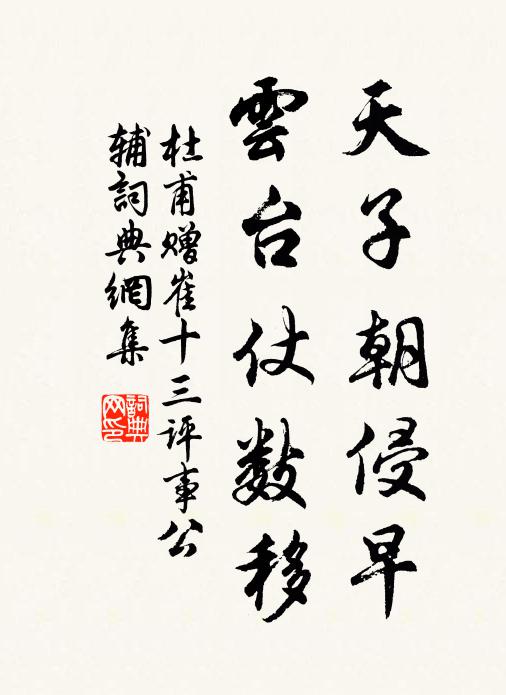 天子朝侵早
雲台仗数移
杜甫赠崔十三评事公
辅詞典網集
詞典
网印